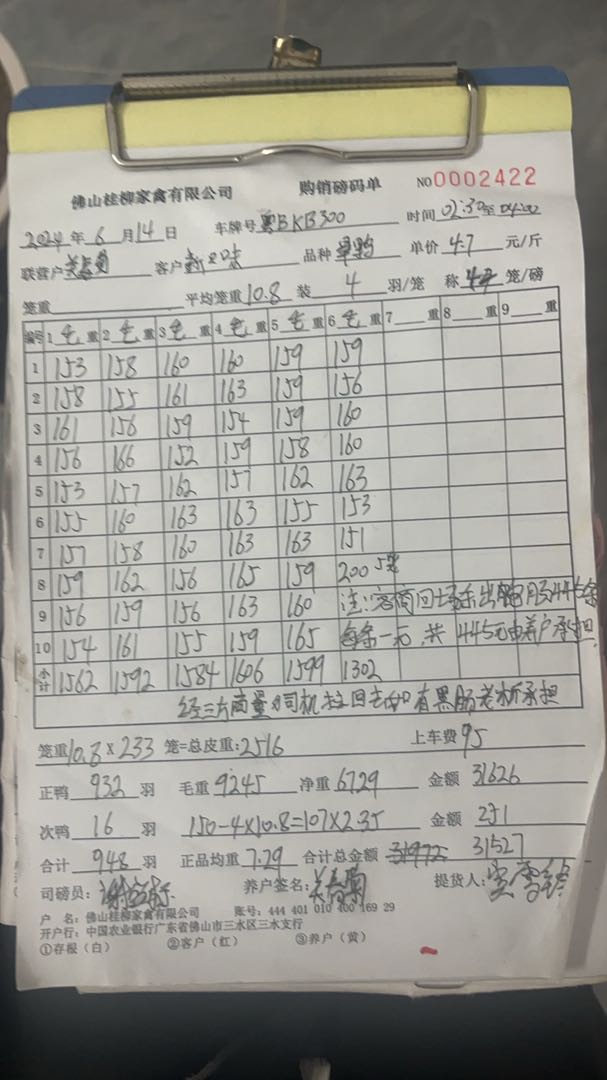 佛山桂柳家禽有限公司 购销磅码单 NO 0002422
2024年6月14日 车牌号 粤BKB300 时间 02:30至04:00
联营户 客户 品种 单价 4.7 元/斤
笼重 平均笼重 10.8 装 4 羽/笼 称 笼/磅
编号 1 毛 重 2 毛 重 3 毛 重 4 毛 重 5 毛 重 6 毛 重 7 重 8 重 9 重
1 153 158 160 160 159 159
2 158 155 161 163 159 156
3 161 156 159 154 159 160
4 156 166 152 159 158 160
5 153 157 162 157 162 163
6 155 160 163 163 155 153
7 157 158 160 163 163 151
8 159 162 156 165 159 200 5笼
9 156 159 156 163 160 注:客商回场
10 154 161 155 159 165 每条一元,共445元由养户承担
小计 1562 1592 1584 1606 1599 1302
经三方商量
笼重 10.8×233 笼=总皮重:2516 上车费 95
正鸭 932 羽 毛重 9245 净重 6729 金额 31626
次鸭 16 羽 150-4×10.8=107×2.35 金额 251
合计 948 羽 正品均重 7.29 合计总金额 31972 31527
司磅员: 养户签名: 提货人:
户 名:佛山桂柳家禽有限公司 账号:444 401 010 400 169 29
开户行:中国农业银行广东省佛山市三水区三水支行
①存根(白) ②客户(红) ③养户(黄)